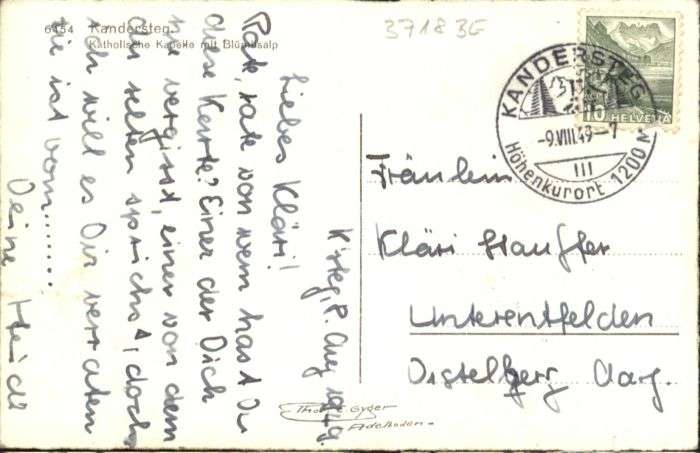 6454 Kandersteg
Katholische Kapelle mit Blümlisalp
37183G
KANDERSTEG
-9.VIII.49-7
III
Höhenkurort 1200 M
10 HELVETIA
K'steg, 8. Aug 1949.
Liebes Kläri!
Rate, rate von wem hast Du
diese Karte? Einer der Dich
nie vergisst, einer von dem
du selten sprichst, doch
ich will es Dir verraten
sie ist vom.......
Deine Heidi
Fräulein
Kläri Stauffer
Unterentfelden
Distelberg Aarg.
Phot. E. Gyger
Adelboden